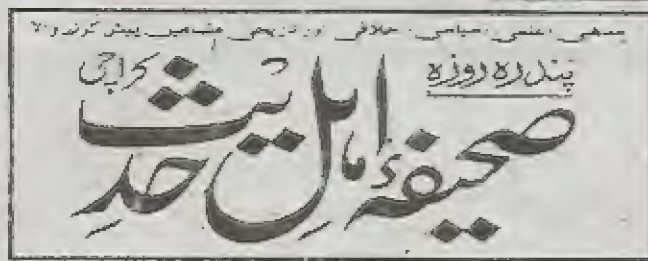 مذہبی، علمی، سیاسی، اخلاقی اور تاریخی مضامین پیش کرنے والا
پندرہ روزہ
صحیفۂ اہل حدیث کراچی